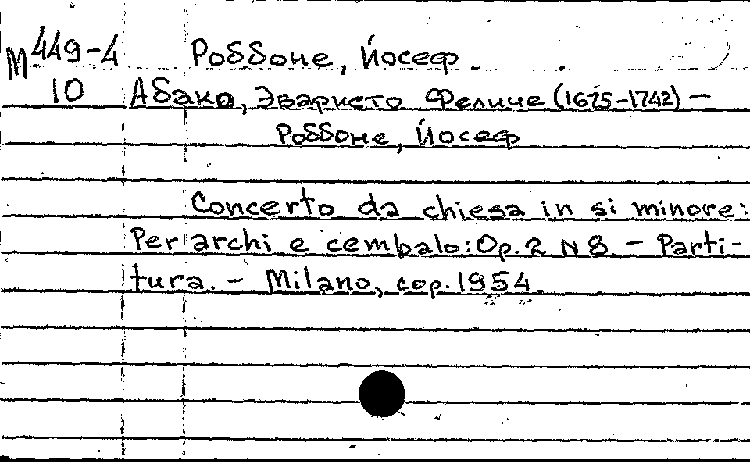 М 449-4 Роббоне, Йосеф.
10 Абако, Эваристо Феличе (1675-1742) –
Роббоне, Йосеф
Concerto da chiesa in si minore:
Per archi e cembalo: Op. 2 N 8. – Parti-
tura. – Milano, cop. 1954.